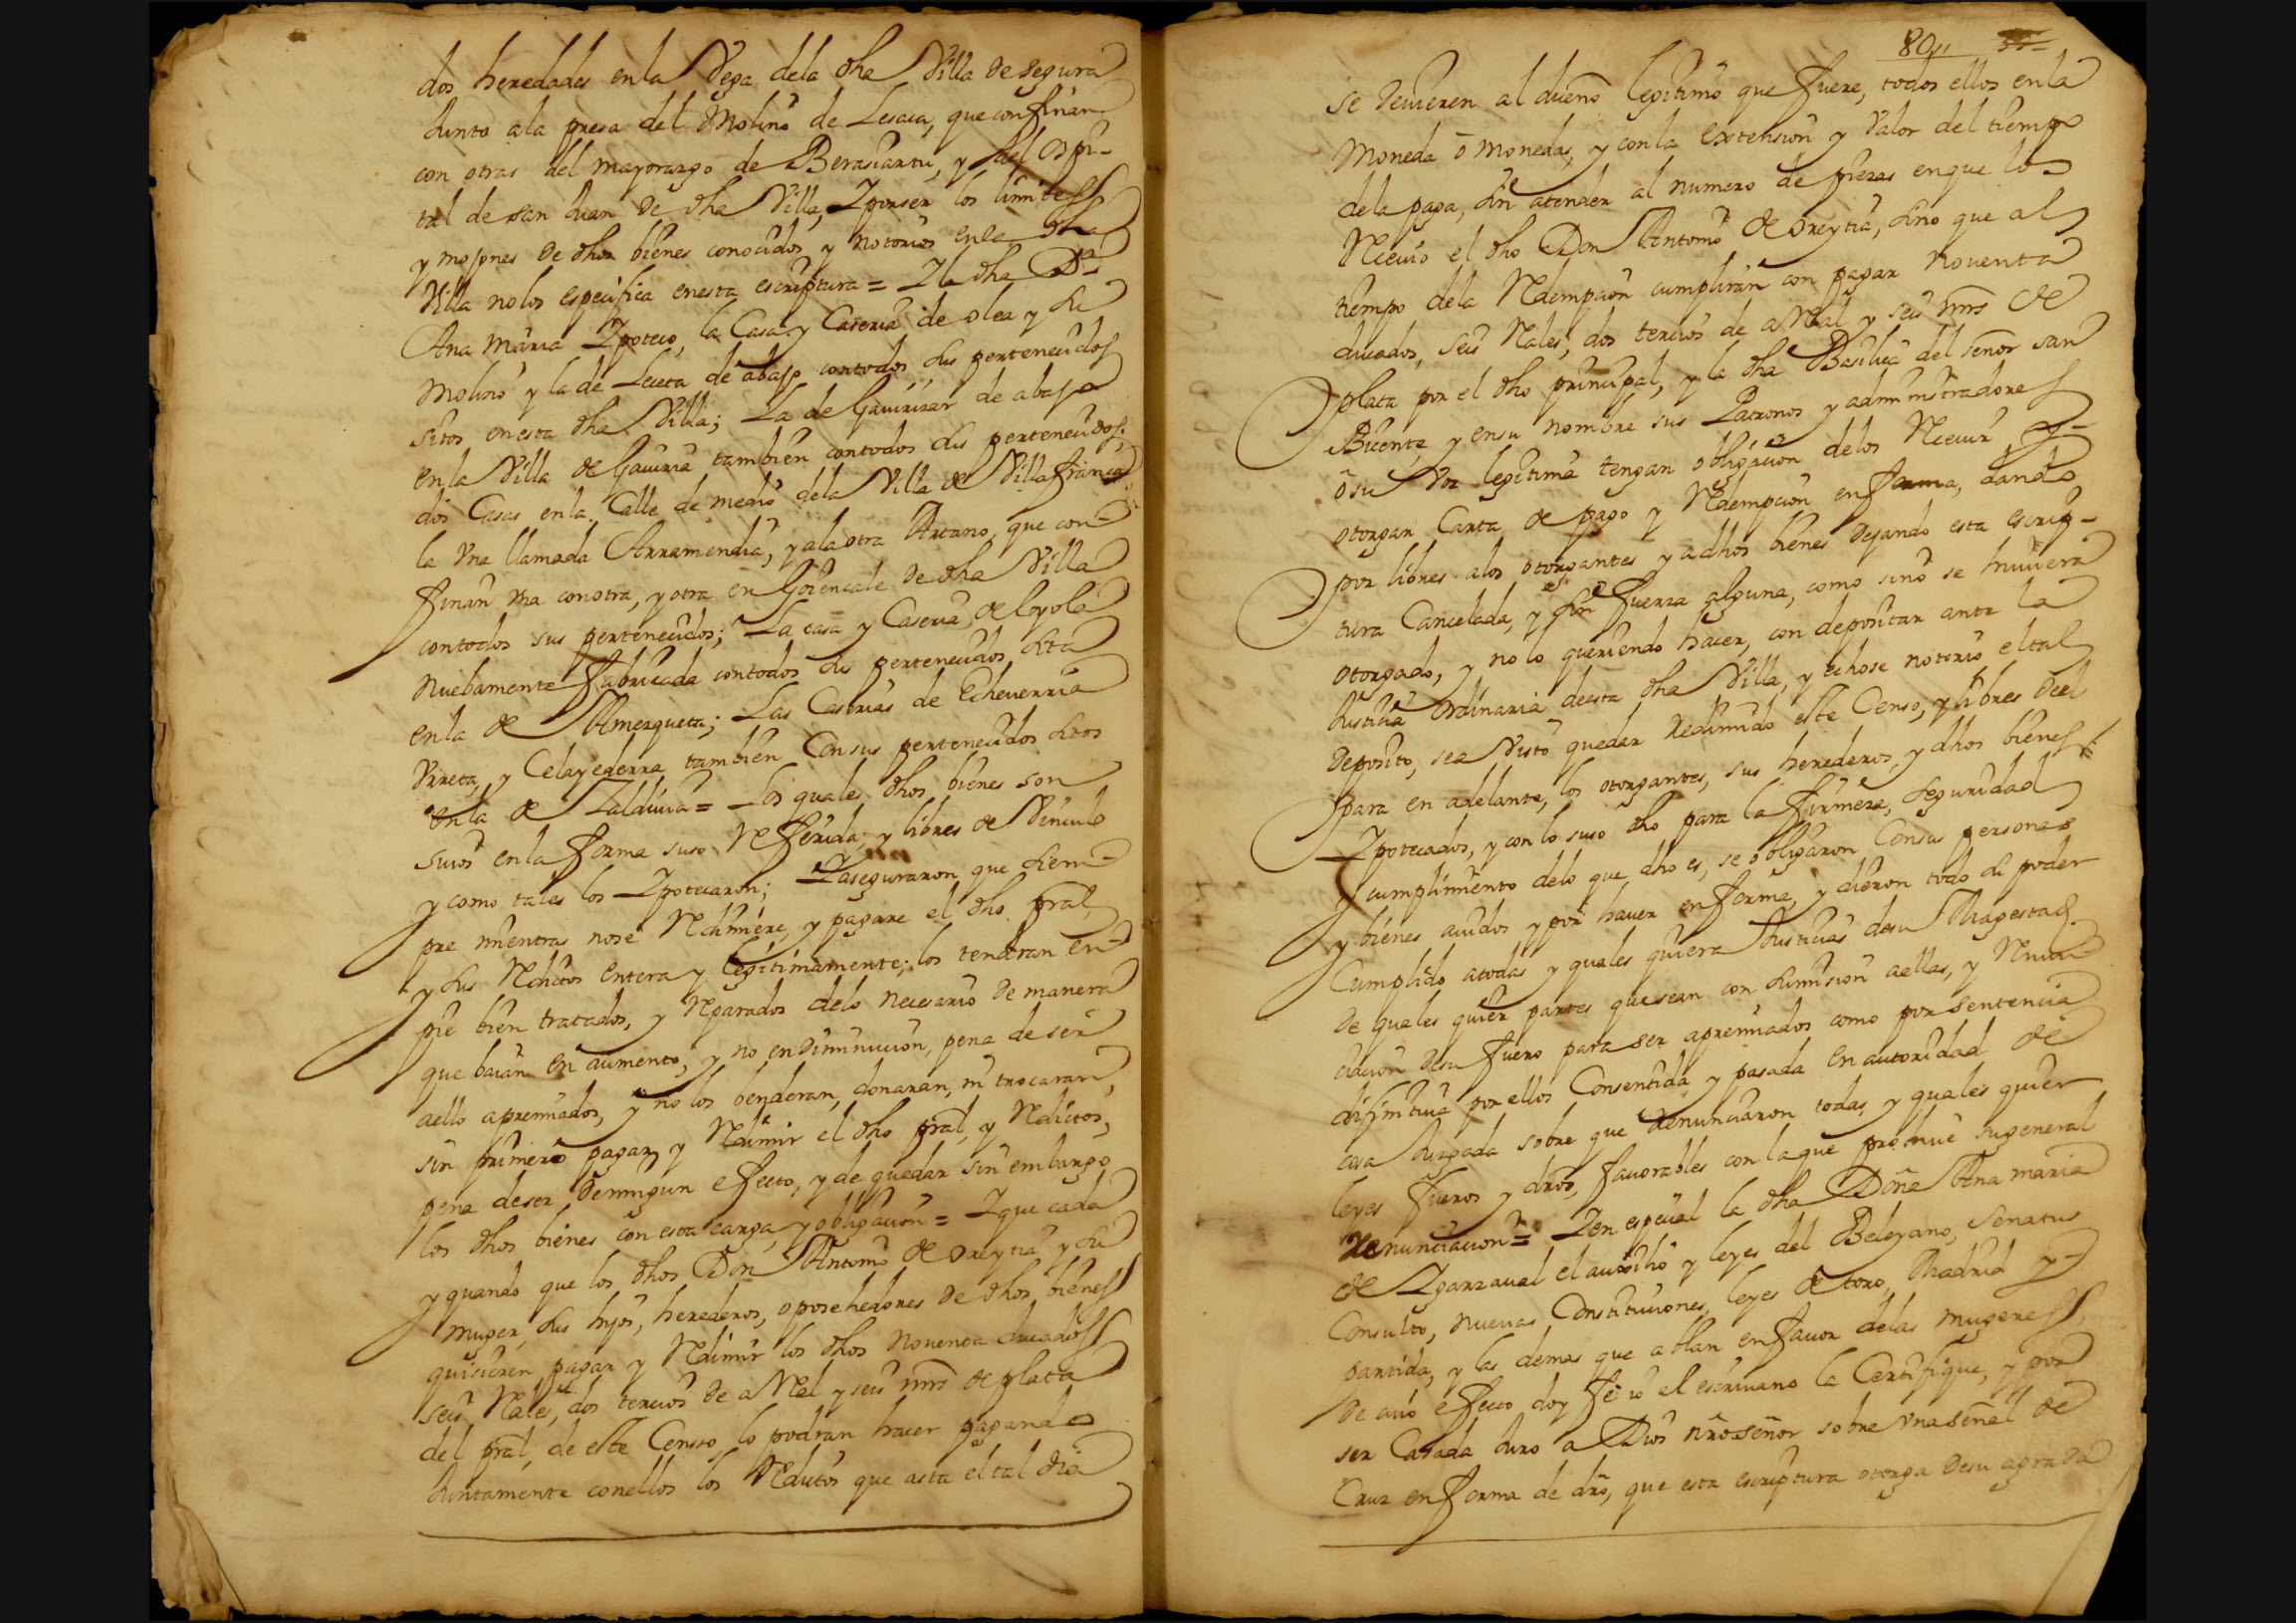 dos heredades en la Vega dela dha Villa de Segura
Junto ala presa del Molino de Lesaca, que confinan
con otras del mayorazgo de Berasiartu, y del ospi-
tal de san Juan de dha Villa, Y por ser los limites
y mojones de dhos bienes conocidos y notorios en la dha
Villa no los especifica en esta escriptura = Y la dha Da
Ana Maria Ypoteco, la Casa y Caseria de olea y su
Molino y la de Leceta de abajo con todos sus pertenecidos
sitos en esta dha Villa; La de Gavirizar de abajo
en la Villa de Gaviria tambien con todos sus pertenecidos;
dos Casas en la Calle de medio dela Villa de Villafranca
la Vna llamada Arramendia, y ala otra Arcano, que con-
finan Vna con otra, y otra en Goiencale de dha Villa
contodos sus pertenecidos; La casa y Caseria de loyola
nuebamente fabricada contodos sus pertenecidos sita
en la de Amezqueta; Las Caserias de Echeverria
Vrreta, y Celayederra tambien Con sus pertenecidos sitos
en la de Zaldivia = Los quales dhos bienes son
suios en la forma suso Referida, y libres de Vinculo
y como tales los Ypotecaron; Y aseguraron que siem-
pre mientras nose Redimiere, y pagare el dho pral,
y sus Reditos entera y legitimamente; los tendran en
pie bien tratados, y Reparados delo necesario de manera
que baian en aumento, y no en Diminucion, pena de ser
aello apremiados, y no los benderan, donaran, ni trocaran,
sin primero pagar y Redimir el dho pral, y Reditos,
pena deser de ningun efecto, y de quedar sin embargo
los dhos bienes con esta carga, y obligacion = Y que cada
y quando que los dhos Don Antonio de oreytia y su
muger, sus hijos, herederos, o posehedores de dhos bienes
quisieren pagar y Redimir los dhos noventa ducados
seis Rales, dos tercios de a Real y seis mrs de plata
del pral de este Censso, lo podran hacer pagando
Juntamente conellos los Reditos que asta el tal dia
80
se devieren al dueño legitimo que fuere, todos ellos en la
moneda o monedas, y con la extension y Valor del tiempo
dela paga, sin atender al numero de piezas en que lo
Recivio el dho Don Antonio de oreytia, sino que al
tiempo dela Redempcion cumpliran con pagar noventa
ducados, seis Rales, dos tercios de a Real y seis mrs de
plata por el dho principal, y la dha Basilica del señor san
Bicente, y en su nombre sus Patronos y administradores
o su Voz legitima tengan obligacion delos Recivir, y
otorgar Carta de pago y Redempcion en forma, dando
por libres alos otorgantes y a dhos bienes Dejando esta escrip-
tura Cancelada, y sin fuerza alguna, como sino se huviera
otorgado, y no lo queriendo hacer, con depositar ante la
Justicia ordinaria deesta dha Villa, y echose notorio el tal
Deposito, sea Visto quedar Redimido este Censo, y libres deel
para en adelante, los otorgantes, sus herederos, y dhos bienes
Ypotecados, y con lo suso dho para la firmeza, seguridad
y cumplimiento delo que dho es, se obligaron Consus personas
y bienes avidos y por haver en forma, y dieron todo su poder
Cumplido atodas y quales quiera Justicias desu Magestad
de quales quier partes que sean con sumision aellas, y Renun-
ciacion desu fuero para ser apremiados como por sentencia
difinitiva por ellos Consentida, y pasada en autoridad de
cosa Juzgada sobre que Renunciaron todas y quales quier
leyes fueros y dros, favorables con la que prohive su general
Renunciacion = Y en especial la dha Doña Ana maria
de Ygarzaval el auxilio y leyes del Beleyano, Senatus
Consulto, nuevas Constituciones, leyes de toro, Madrid y
partida, y las demas que ablan en favor delas mugeres,
de cuio efecto doy fe io el escrivano la Certifique, y por
ser Casada Juro a Dios nro señor sobre Vna señal de
Cruz en forma de dro, que esta escriptura otorga desu agrada